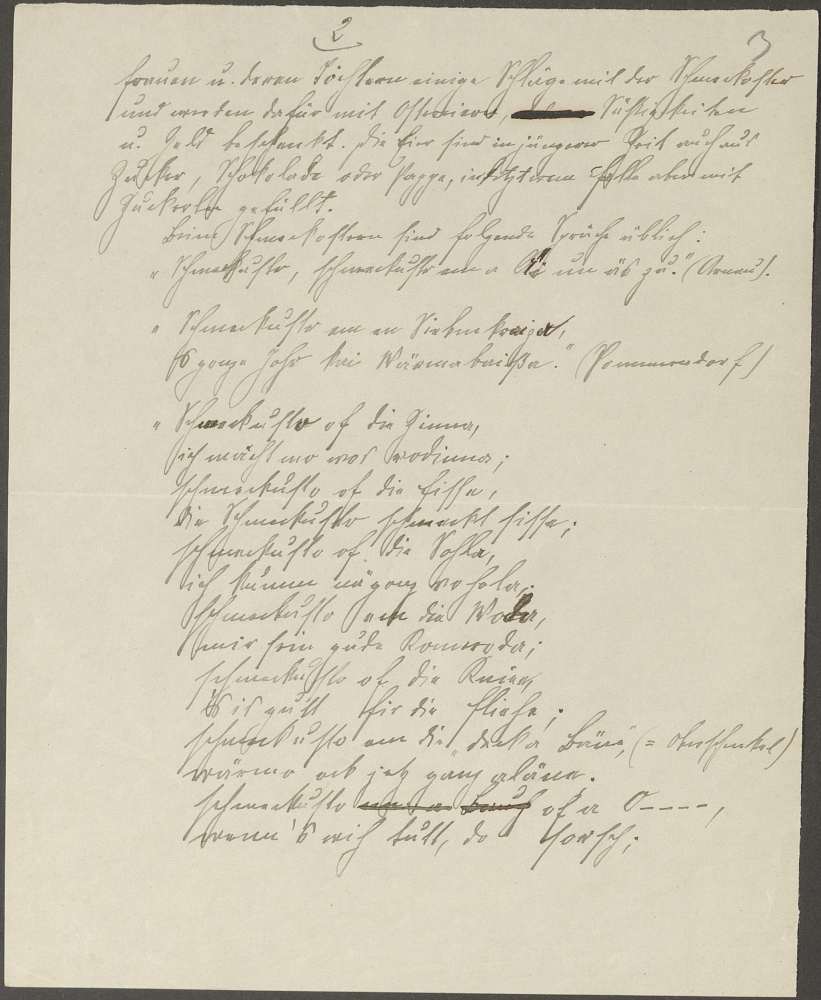 2
3
frauen u. deren Töchtern einige Schläge mit der Schmeckoster
und werden dafür mit Ostereiern, Süßigkeiten
u. Geld beschenkt. Die Eier sind in jüngerer Zeit auch aus
Zucker, Schokolade oder Pappe, in letzterem Falle aber mit
Zuckerln gefüllt.
Beim Schmeckostern sind folgende Sprüche üblich:
"Schmeckustr, schmeckustr em a Ai un äs zu." (Arnau).
"Schmeckustr em en Siebmkreiza,
's ganze Johr kei Wärmabeißa." (Pommerndorf)
"Schmeckustr of die Zinna,
ich mächt mo wos vodinna;
schmeckustr of die Fisse,
die Schmeckustr schmeckt sisse;
schmeckustr of die Sohla,
ich kumm na gonz vohola;
schmeckustr em die Woda,
mir sein gude Komeroda;
schmeckustr of die Kniea,
's is gutt fir die Fliehe;
schmeckustr em die "decka Bäne", (= Oberschenkel)
wärmo ock jetz ganz aläne.
schmeckustr of a O----,
wenn's wih tutt, do horsch;